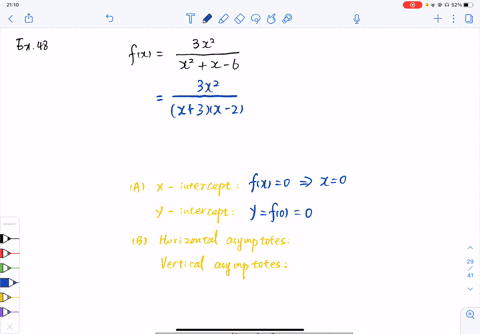 21:10
52%
Ex.48
f(x) = 3x² / x² + x - 6
= 3x² / (x+3)(x-2)
(A) x-intercept: f(x)=0 ⇒ x=0
y-intercept: y=f(0)=0
(B) Horizontal asymptotes:
Vertical asymptotes:
29
/
41